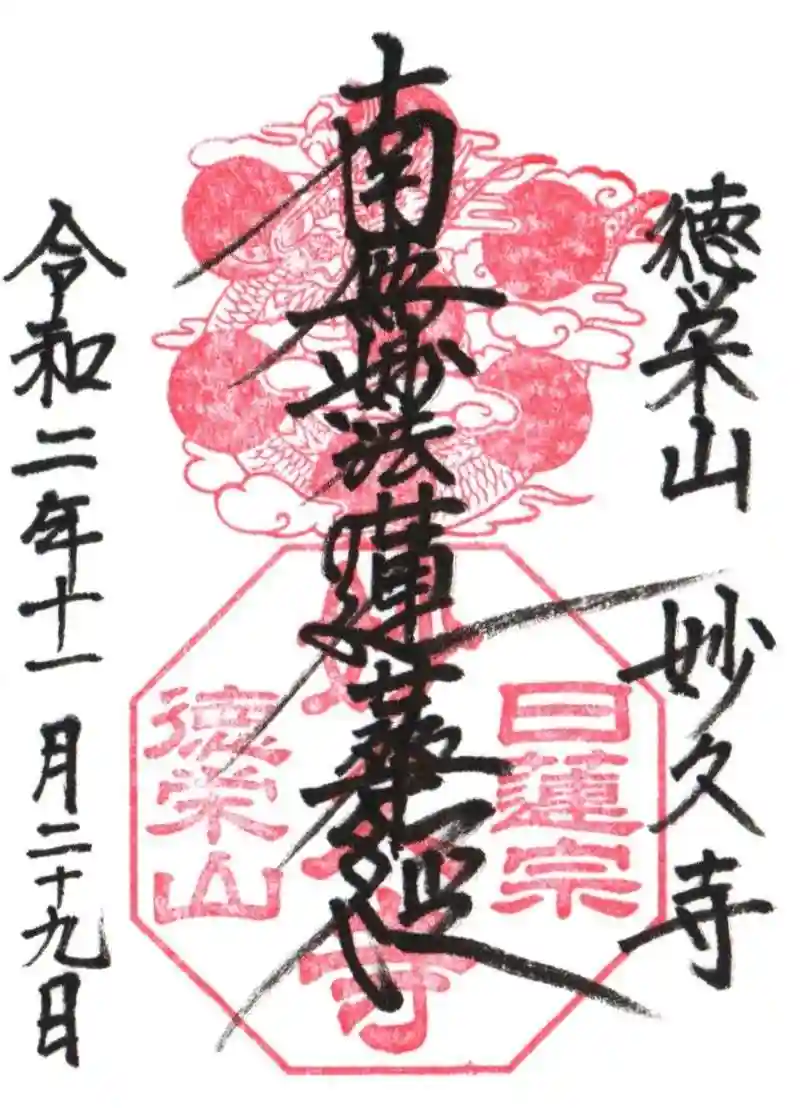 徳栄山 妙久寺
南無妙法蓮華経
令和二年十一月二十九日
日蓮宗
妙久寺
徳栄山